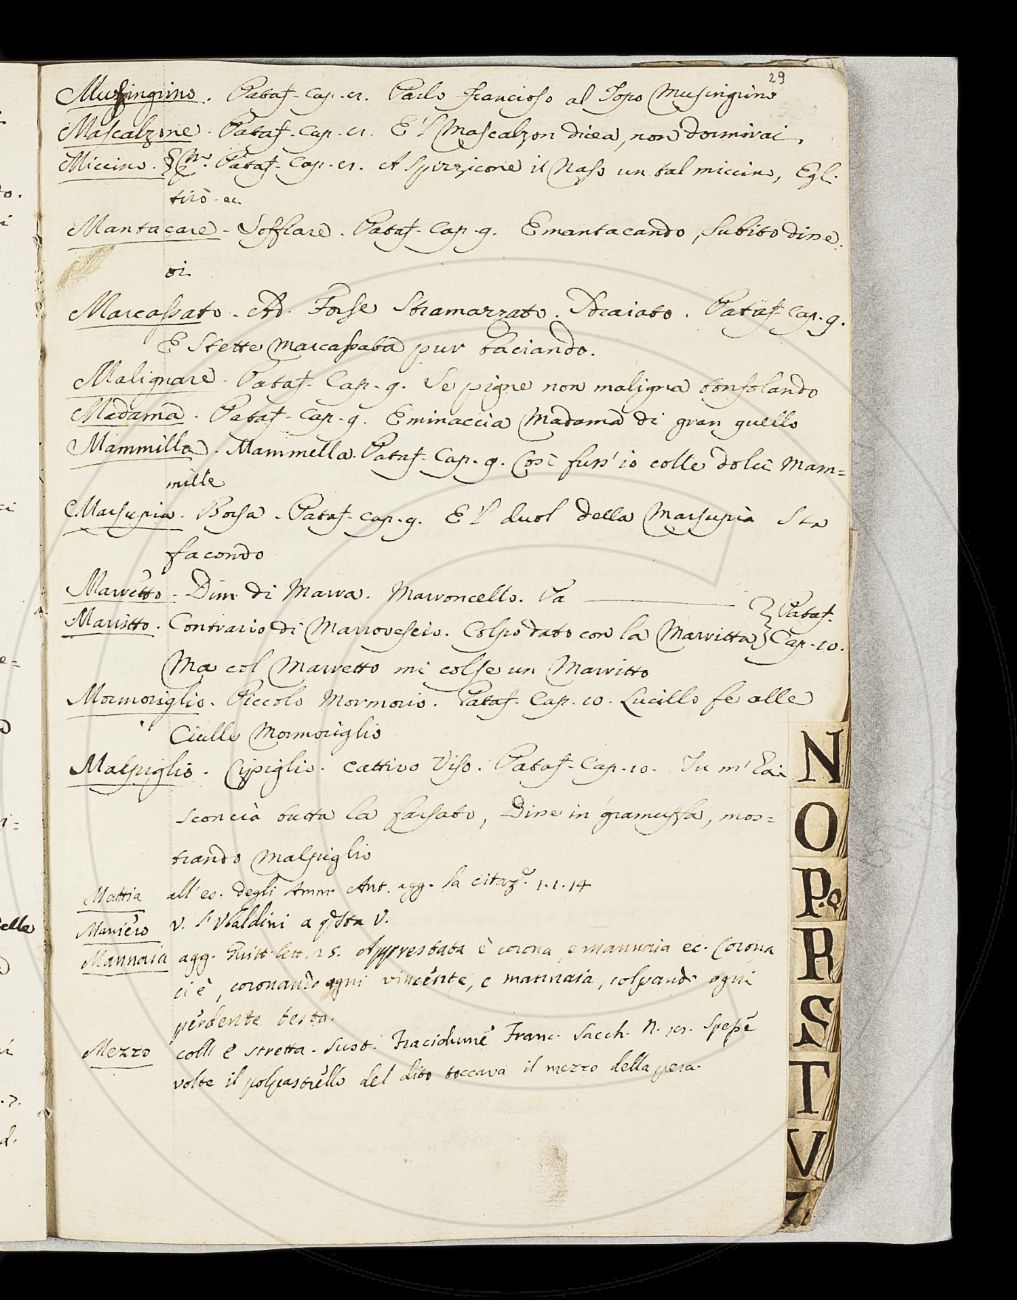 29
Musingrino. Pataf. Cap. 8. Parlo francioso al Topo Musingrino
Mascalzone. Pataf. Cap. 8. E 'l Mascalzon dicea, non dormirai.
Miccino. Pataf. Cap. 8. A spizzicone il Naso un tal miccino, Egl.
tirò. ec.
Mantacare. Soffiare. Pataf. Cap. 9. E mantacando, subito disse
oi
Marcassato. Ad. Forse Stramazzato. Sdraiato. Pataf. Cap. 9.
E Stette Marcassata pur baciando.
Malignare. Pataf. Cap. 9. Se pigne non maligna consolando
Madama. Pataf. Cap. 9. E minaccia Madama di gran quello
Mammilla. Mammella. Pataf. Cap. 9. Così fuss' io colle dolci Mam=
mille
Marsupia. Borsa. Pataf. Cap. 9. E 'l duol della Marsupia Sta
facondo
Marretto. Dim. di Marra. Marroncello. Pa
Pataf.
Marritto. Contrario di Marrovescio. Colpo dato con la Marritta
Cap. 10.
Ma col Marretto mi colse un Marritto
Mormoriglio. Piccolo Mormorio. Pataf. Cap. 10. Lucillo fe alle
Ciulle Mormoriglio
Malpiglio. Cipiglio. Cattivo Viso. Pataf. Cap. 10. Tu m' hai
sconcia tutta la farsata, Disse in gramuffa, mos=
trando Malpiglio
Mattia all' es. degli Amm. Ant. agg. la citaz.e 1.1.14
Maniero v. l' Ubaldini a qsta V.
Mannaia agg. Guitt. lett. 25. Apprestata è corona, e mannaia ec. Corona
ci è, coronando ogni vincente, e mannaia, colpando ogni
perdente testa.
Mezzo coll' E stretta. Sust. Fracidume Franc. Sacch. N. Spesse
volte il polpastrello del dito toccava il mezzo della pera.
N
O
P.Q
R
S
T
V
Z